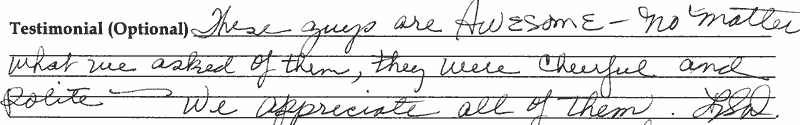 Testimonial (Optional) These guys are AWESOME - no matter
what we asked of them, they were cheerful and
polite — We appreciate all of them.